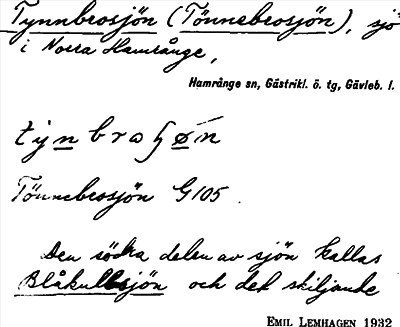 Tynnbrosjön (Tönnebrosjön), sjö
i Norra Hamrånge,
Hamrånge sn, Gästrikl. ö. tg, Gävleb. l.
Tönnebrosjön G105.
Den södra delen av sjön kallas
Blåkullsjön och det skiljande
EMIL LEMHAGEN 1932